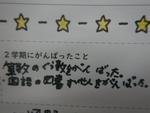 2学期にがんばったこと
算数のぐ数をがんばった。
国語の図書かせんをがんばった。